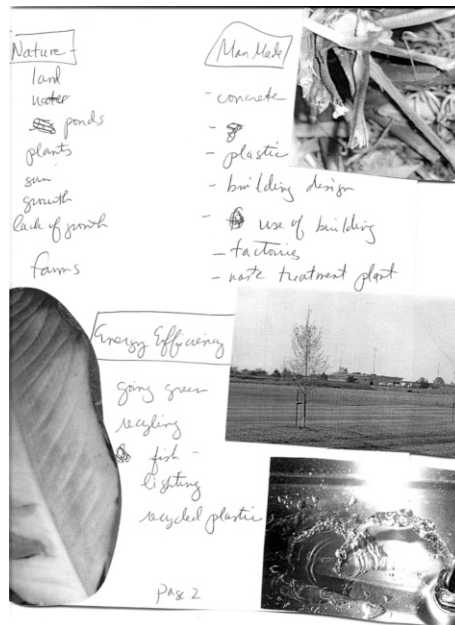 Nature -
land
water
ponds
plants
sun
growth
lack of growth
farms
Man Made
- concrete
-
- plastic
- building design
- use of building
- factories
- waste treatment plant
Energy Efficiency
going green
recyling
fish -
lighting
recycled plastic
page 2